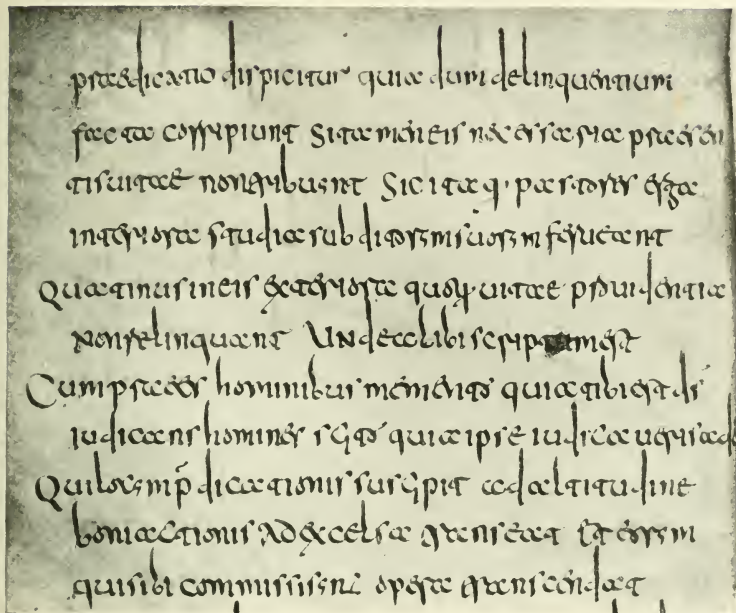 praedicatio dispicitur quia dum delinquentium
facta corripiunt Si tamen eis necessaria praesen
tis uitae non tribuent Sic itaq· pastores erga
interiora studia subditorum suorum ferueant
Quatinus in eis exteriora quoq· uitae prouidentia
non relinquant Unde alibi scriptum est
Cum praees hominibus memento quia tibi est d̄s
iudicans homines scito quia ipse iudicaueris a d
Qui locum p̄dicationis suscipit ad altitudine
boni actionis Ad excelsa transeat Et eorum
qui sibi commissi sunt opera transcendat